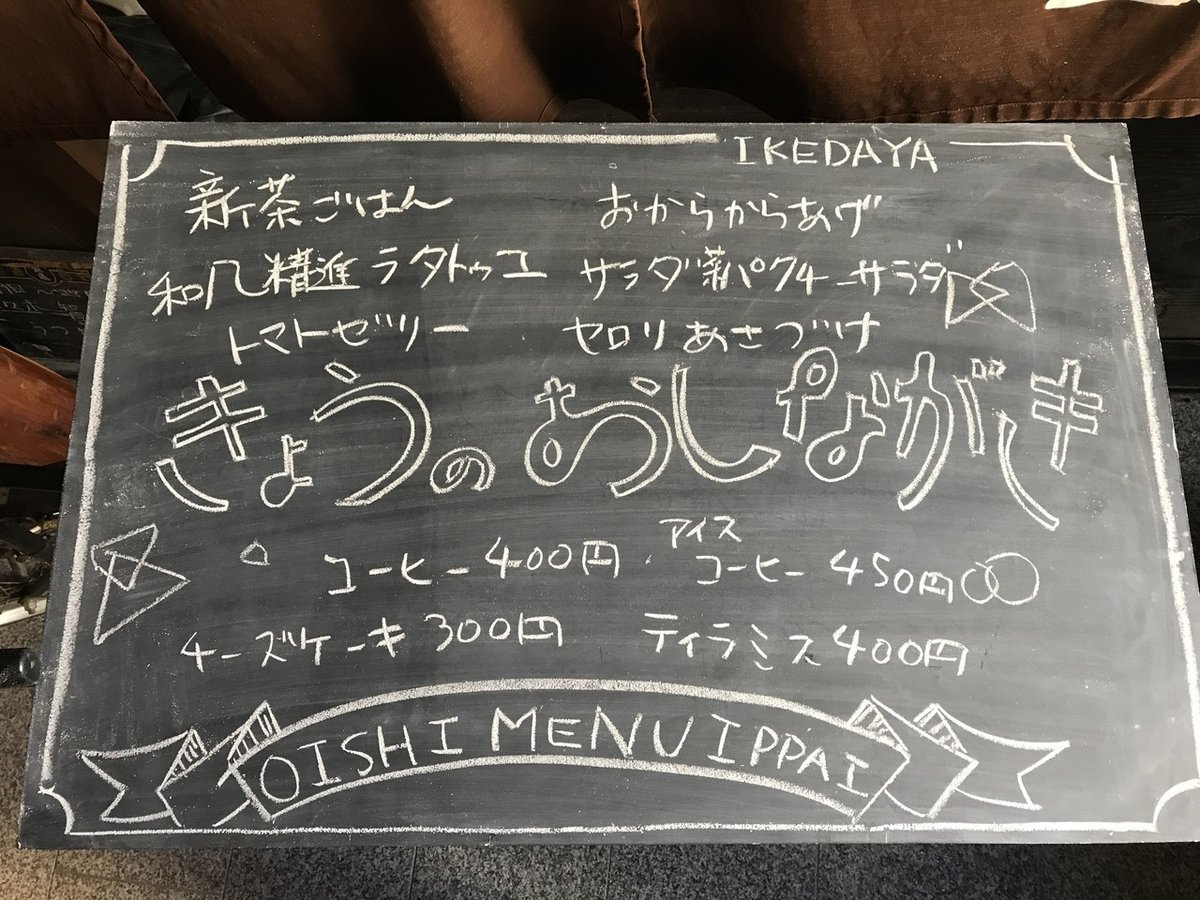 IKEDAYA
新茶ごはん おからからあげ
和風精進ラタトゥユ サラダ菜パクチーサラダ
トマトゼリー セロリあさづけ
きょうのおしながき
コーヒー400円・アイスコーヒー450円
チーズケーキ300円 ティラミス400円
OISHI MENU IPPAI